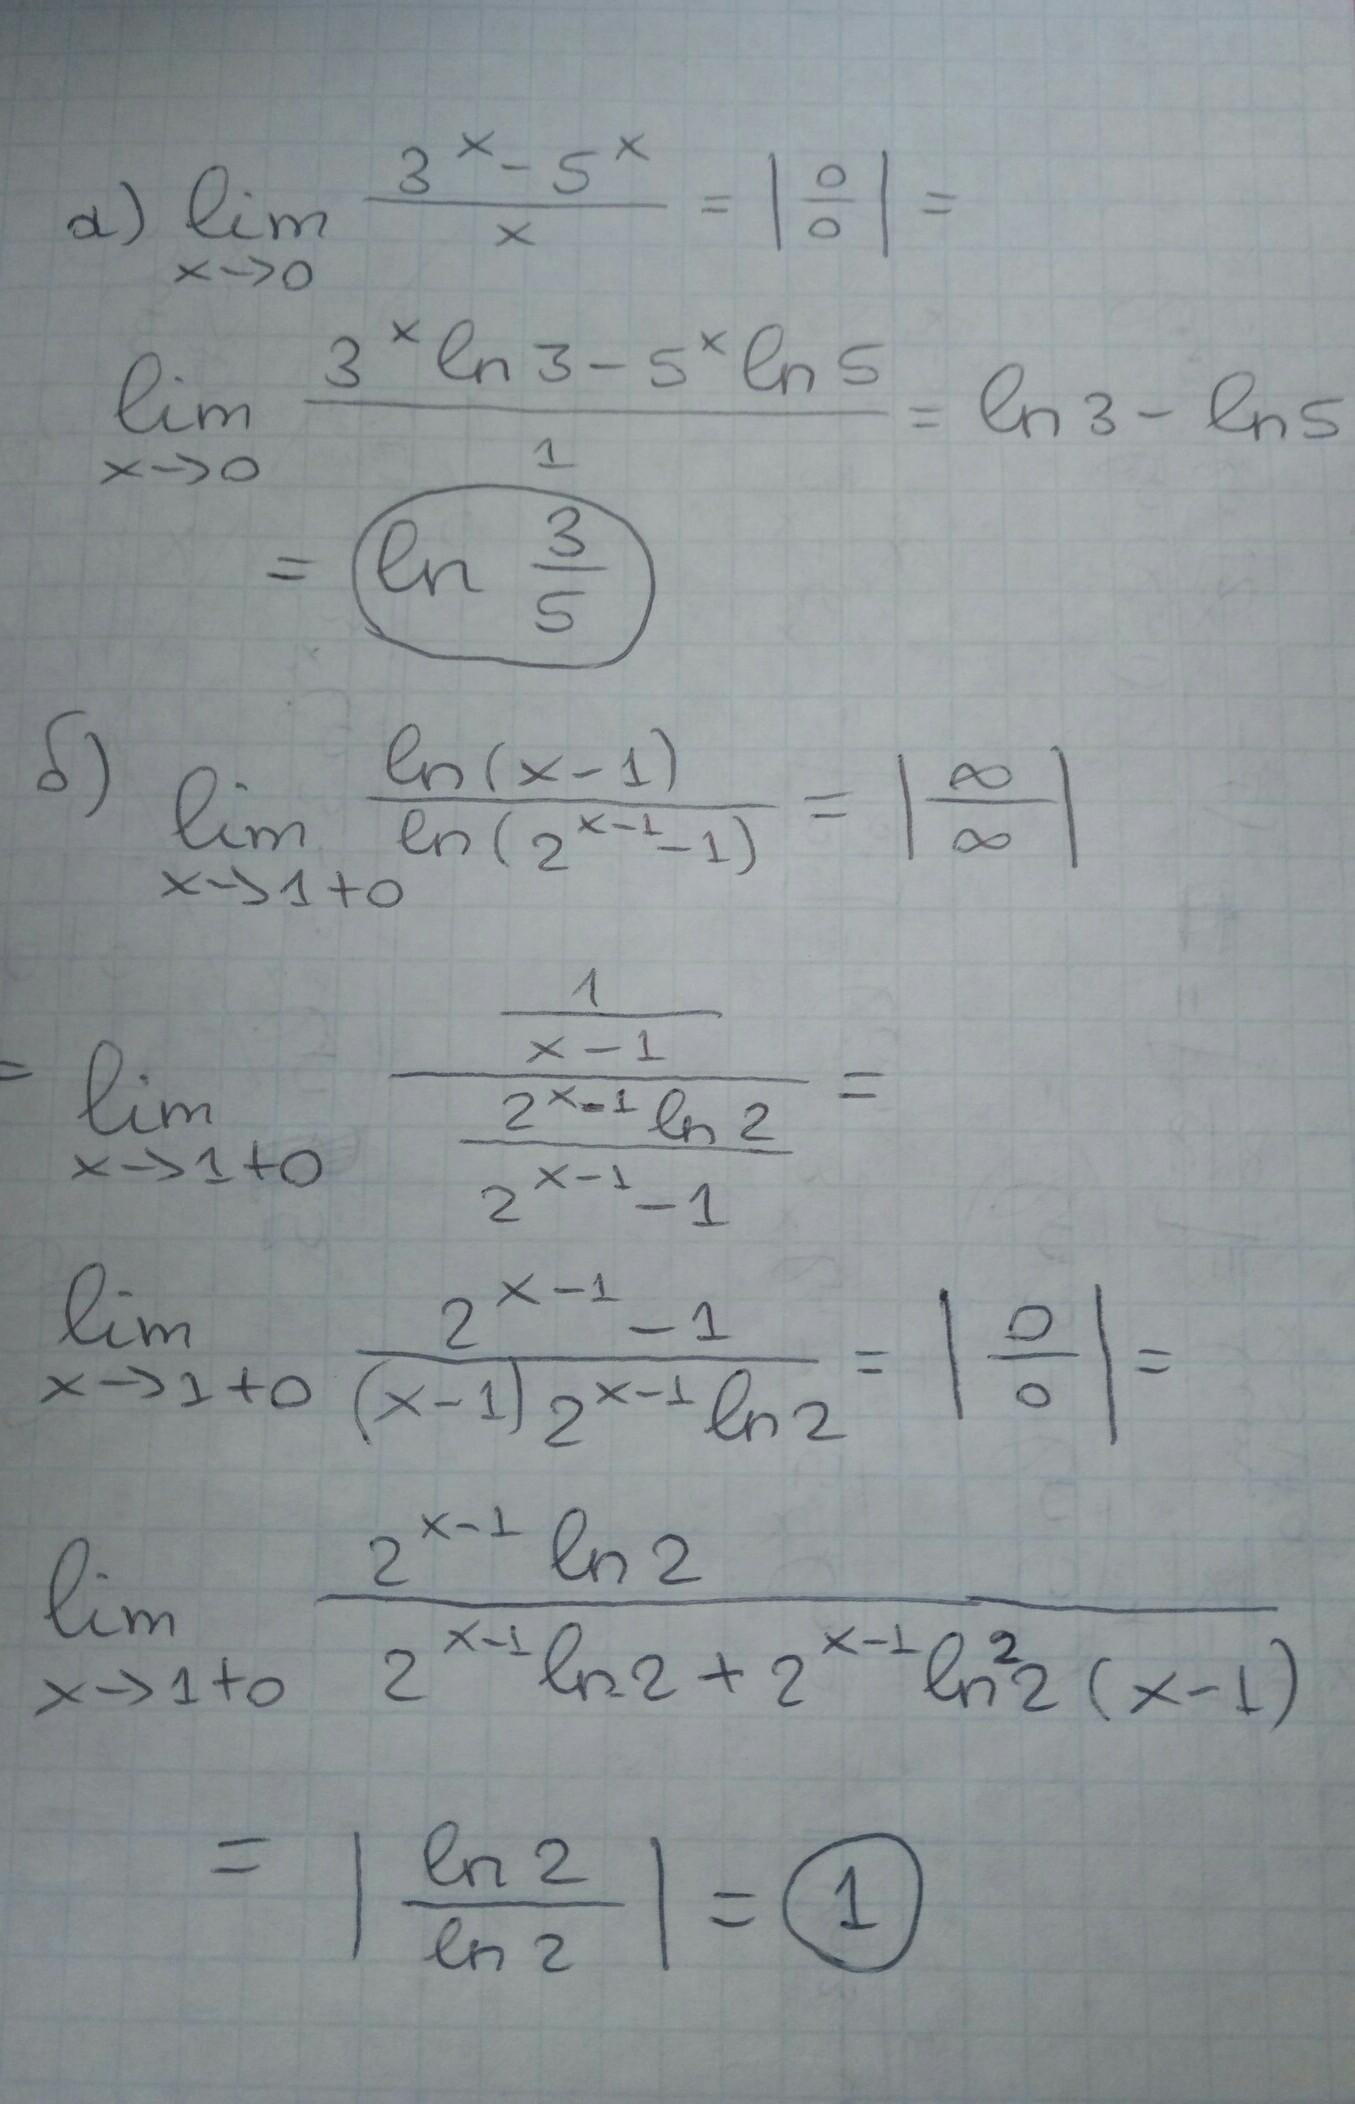 а) lim x→0 (3^x - 5^x)/x = |0/0| =
lim x→0 (3^x ln3 - 5^x ln5)/1 = ln3 - ln5
= ln 3/5
б) lim x→1+0 ln(x-1)/ln(2^(x-1)-1) = |∞/∞|
= lim x→1+0 (1/(x-1))/((2^(x-1) ln2)/(2^(x-1)-1)) =
lim x→1+0 (2^(x-1)-1)/((x-1)2^(x-1) ln2) = |0/0| =
lim x→1+0 (2^(x-1) ln2)/(2^(x-1) ln2 + 2^(x-1) ln²2 (x-1))
= |ln2/ln2| = 1